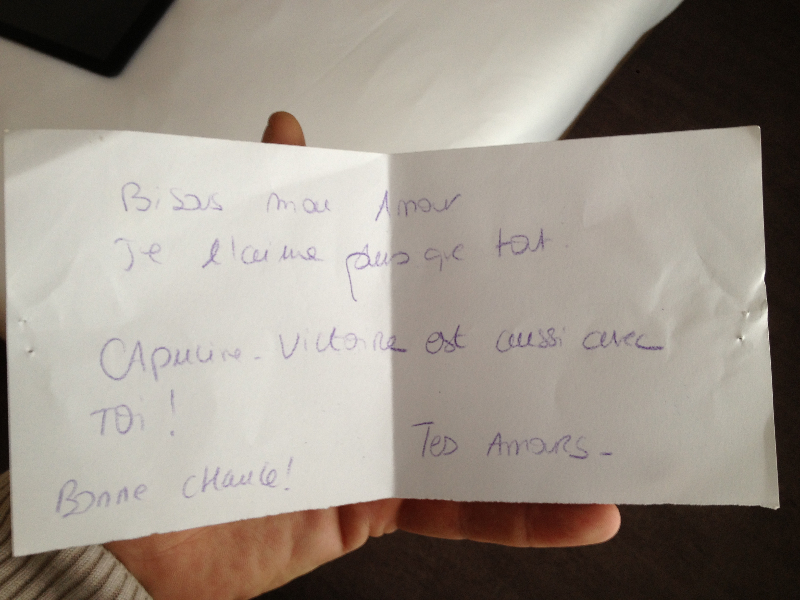 Bisous mon Amour
Je t'aime plus que tout.
CApucine-Victoire est aussi avec
TOi !
Tes Amours-
Bonne cHance!